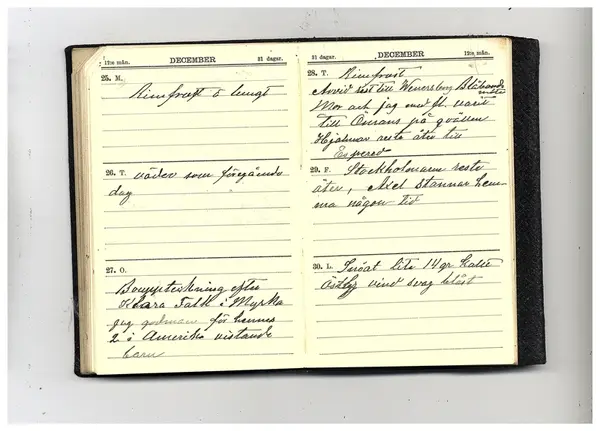 12te mån. DECEMBER 31 dagar.
25. M.
Rimfrost o lungt
26. T. väder som föregående
dag
27. O.
Bouppteckning efter
Klara Falk i Myrka
jag godman för hennes
2 i Amerika vistande
barn
31 dagar. DECEMBER 12te mån.
28. T. Rimfrost
Arvid rest till Wenersborg
Mor och jag med fl. varit
till Örnans på qvällen
Hjalmar reste åter till
29. F. Stockholmarne reste
åter, Axel stannar hem-
ma någon tid
30. L. Snöat lite 14 gr kallt
Östlig vind svag blåst